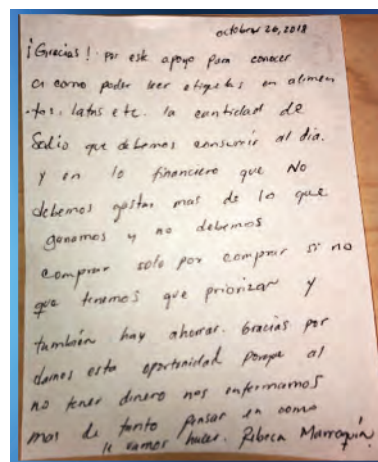 octobrer 26, 2018
¡Gracias! por este apoyo para conocer
a como poder leer etiquetas en alimen
-tos, latas etc. la cantidad de
Sodio que debemos consumir al dia.
y en lo financiero que No
debemos gastar mas de lo que
ganamos y no debemos
comprar solo por comprar si no
que tenemos que priorizar y
también hay ahorrar. Gracias por
darnos esta oportunidad porque al
no tener dinero nos enfermamos
mas de tanto pensar en como
le vamos hacer. Rebeca Marroquín